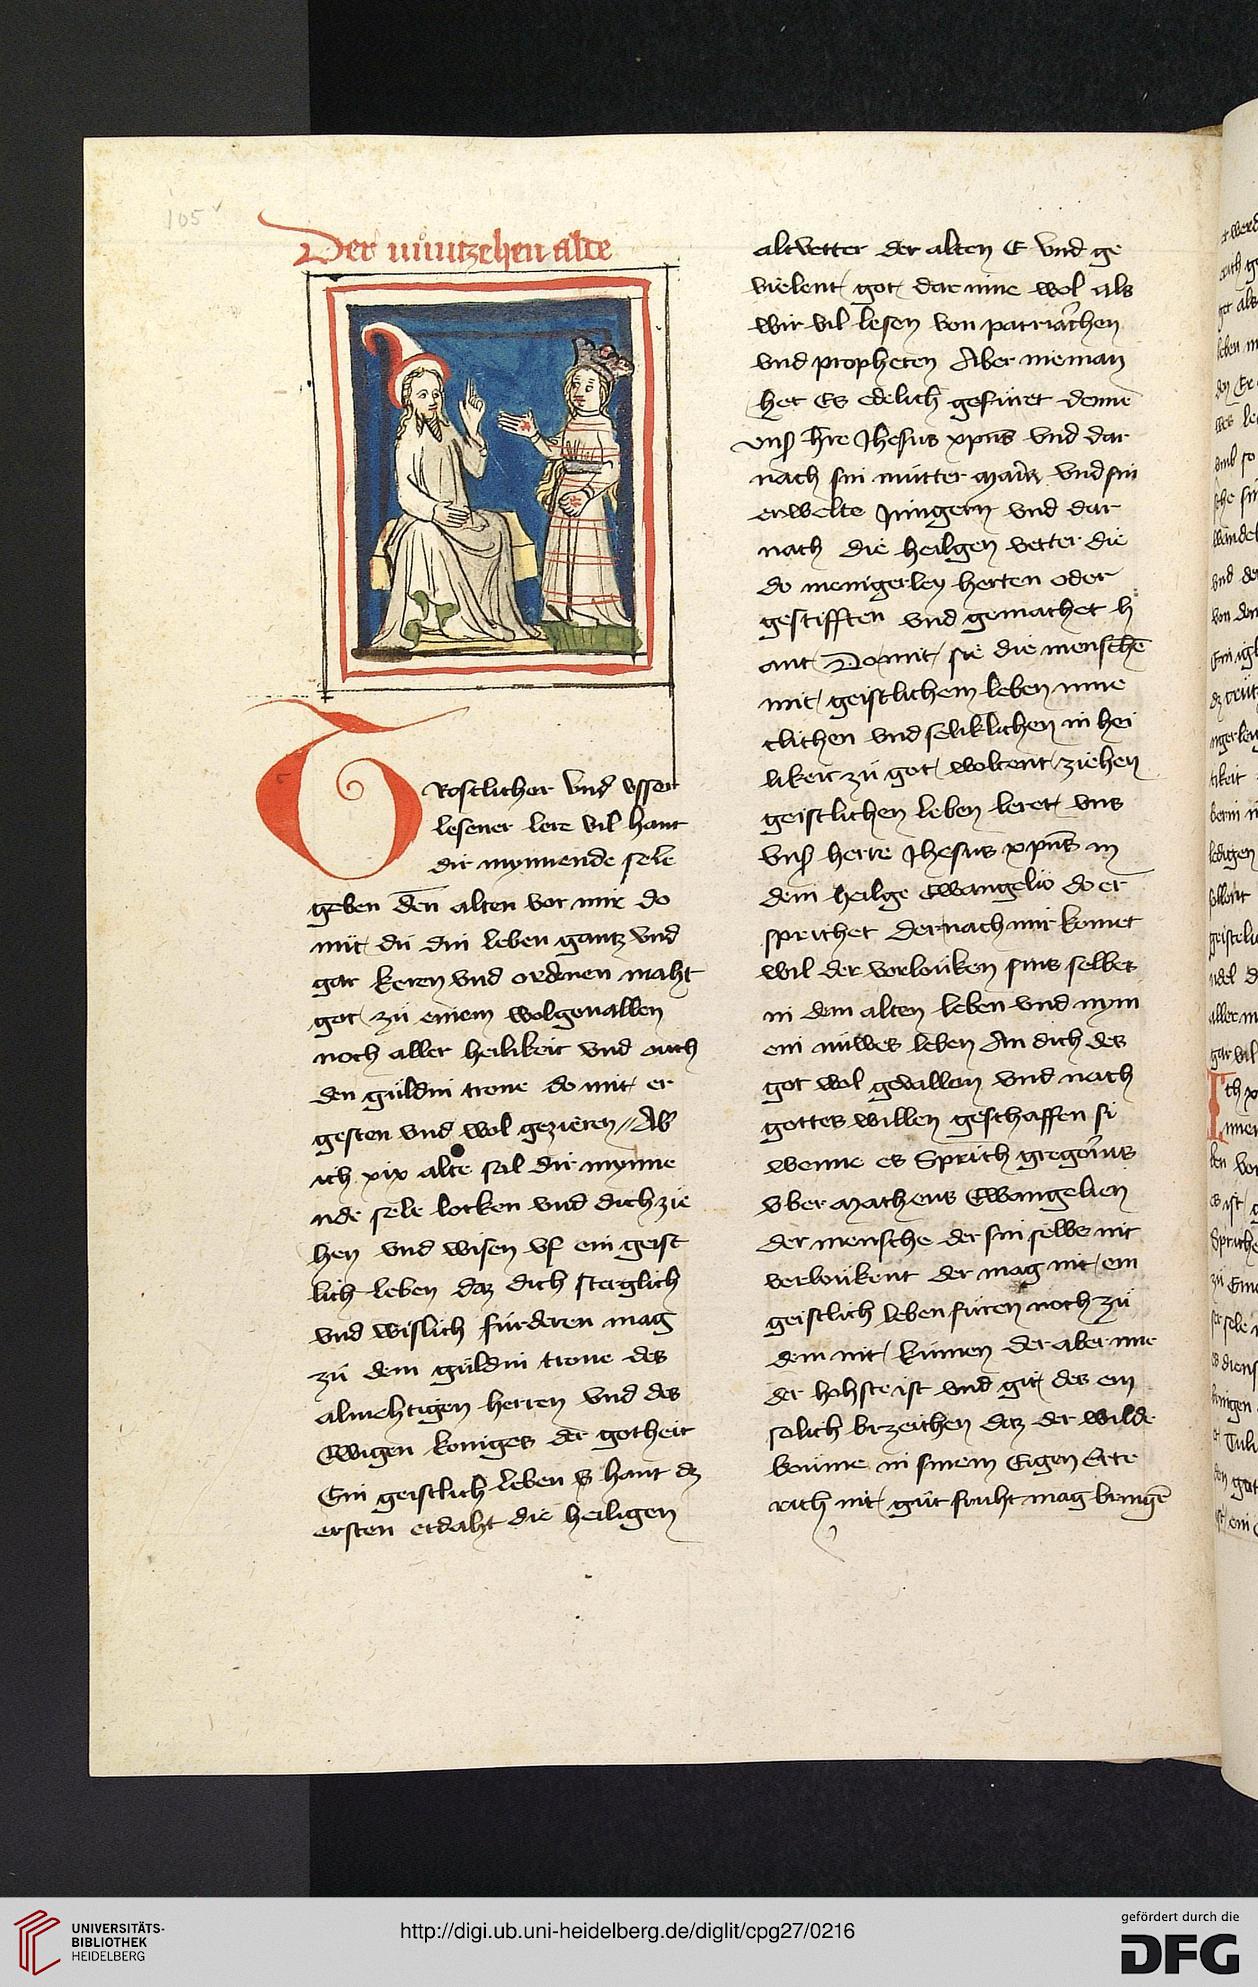 105v
Der núntzehen alte
TRostlicher vnd vsser
lesener lere vil hant
dir mynnende sele
geben den alten vor mir do
mit dú din leben gantz vnd
gar keren vnd ordenen maht
got zú einem wolgeuallen
noch aller heilikeit vnd ouch
den guldin trone do mit er
gesten vnd wol gezieren // Ab
ich xix alte sol dir mynne
nde sele locken vnd dich zie
hen vnd wisen vf ein geist
lich leben daz dich
vnd wislich fúrderen mag
zú dem guldin trone des
almehtigen herren vnd des
Ewigen koniges der gotheit
Ein geistlich leben hant dz
ersten erdaht die heiligen
altvetter der alten E vnd ge
vielent got dar inne wol als
wir vil lesen von patriarchen
vnd propheten Aber nieman
het Es edelich gefúret denne
vnser herre Jhesus xpus vnd dar
nach sin mútter maria vnd sin
erwelte Jungern vnd dar
nach die heilgen vetter die
do menigerley herten oder
gestifften vnd gemachet h
ant Do mit sie die menschen
mit geistlichem leben inne
clichen vnd seliklichen in hei
likeit zú got woltent ziehen
geistlichen leben leret vns
vnser herre Jhesus xpus in
dem heilge Ewangelio do er
sprichet Der nach mir komet
wil der verlouken sins selbes
in dem alten leben vnd nym
ein núwes leben An dich des
got wol gevallen vnd nach
gottes willen geschaffen si
wenne es Sprich gregorius
vber matheus Ewangelien
der mensche der sin selbe nit
verloukent der mag nit ein
geistlich leben fúren noch zú
dem nit kumen der aber inne
der hohste ist vnd git des ein
solich bizeichen daz der wilde
boume in sinem Eigen Erte
rich nit gút fruht mag bringen
UNIVERSITÄTS-
BIBLIOTHEK
HEIDELBERG
http://digi.ub.uni-heidelberg.de/diglit/cpg27/0216
gefördert durch die
DFG